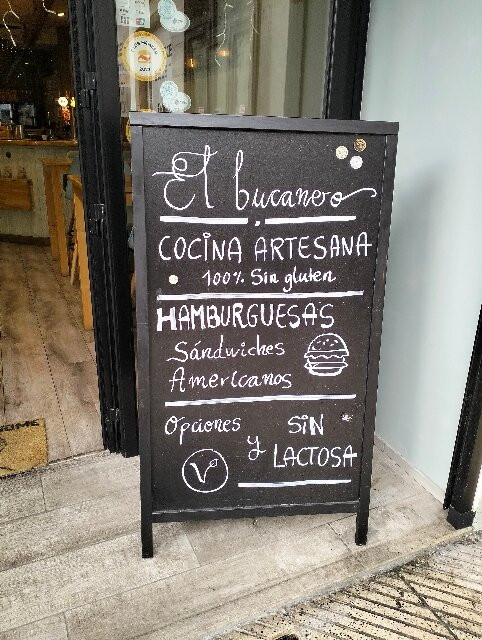 El bucanero
COCINA ARTESANA
100% Sin gluten
HAMBURGUESAS
Sándwiches
Americanos
Opciones
V
y
SiN
LACTOSA